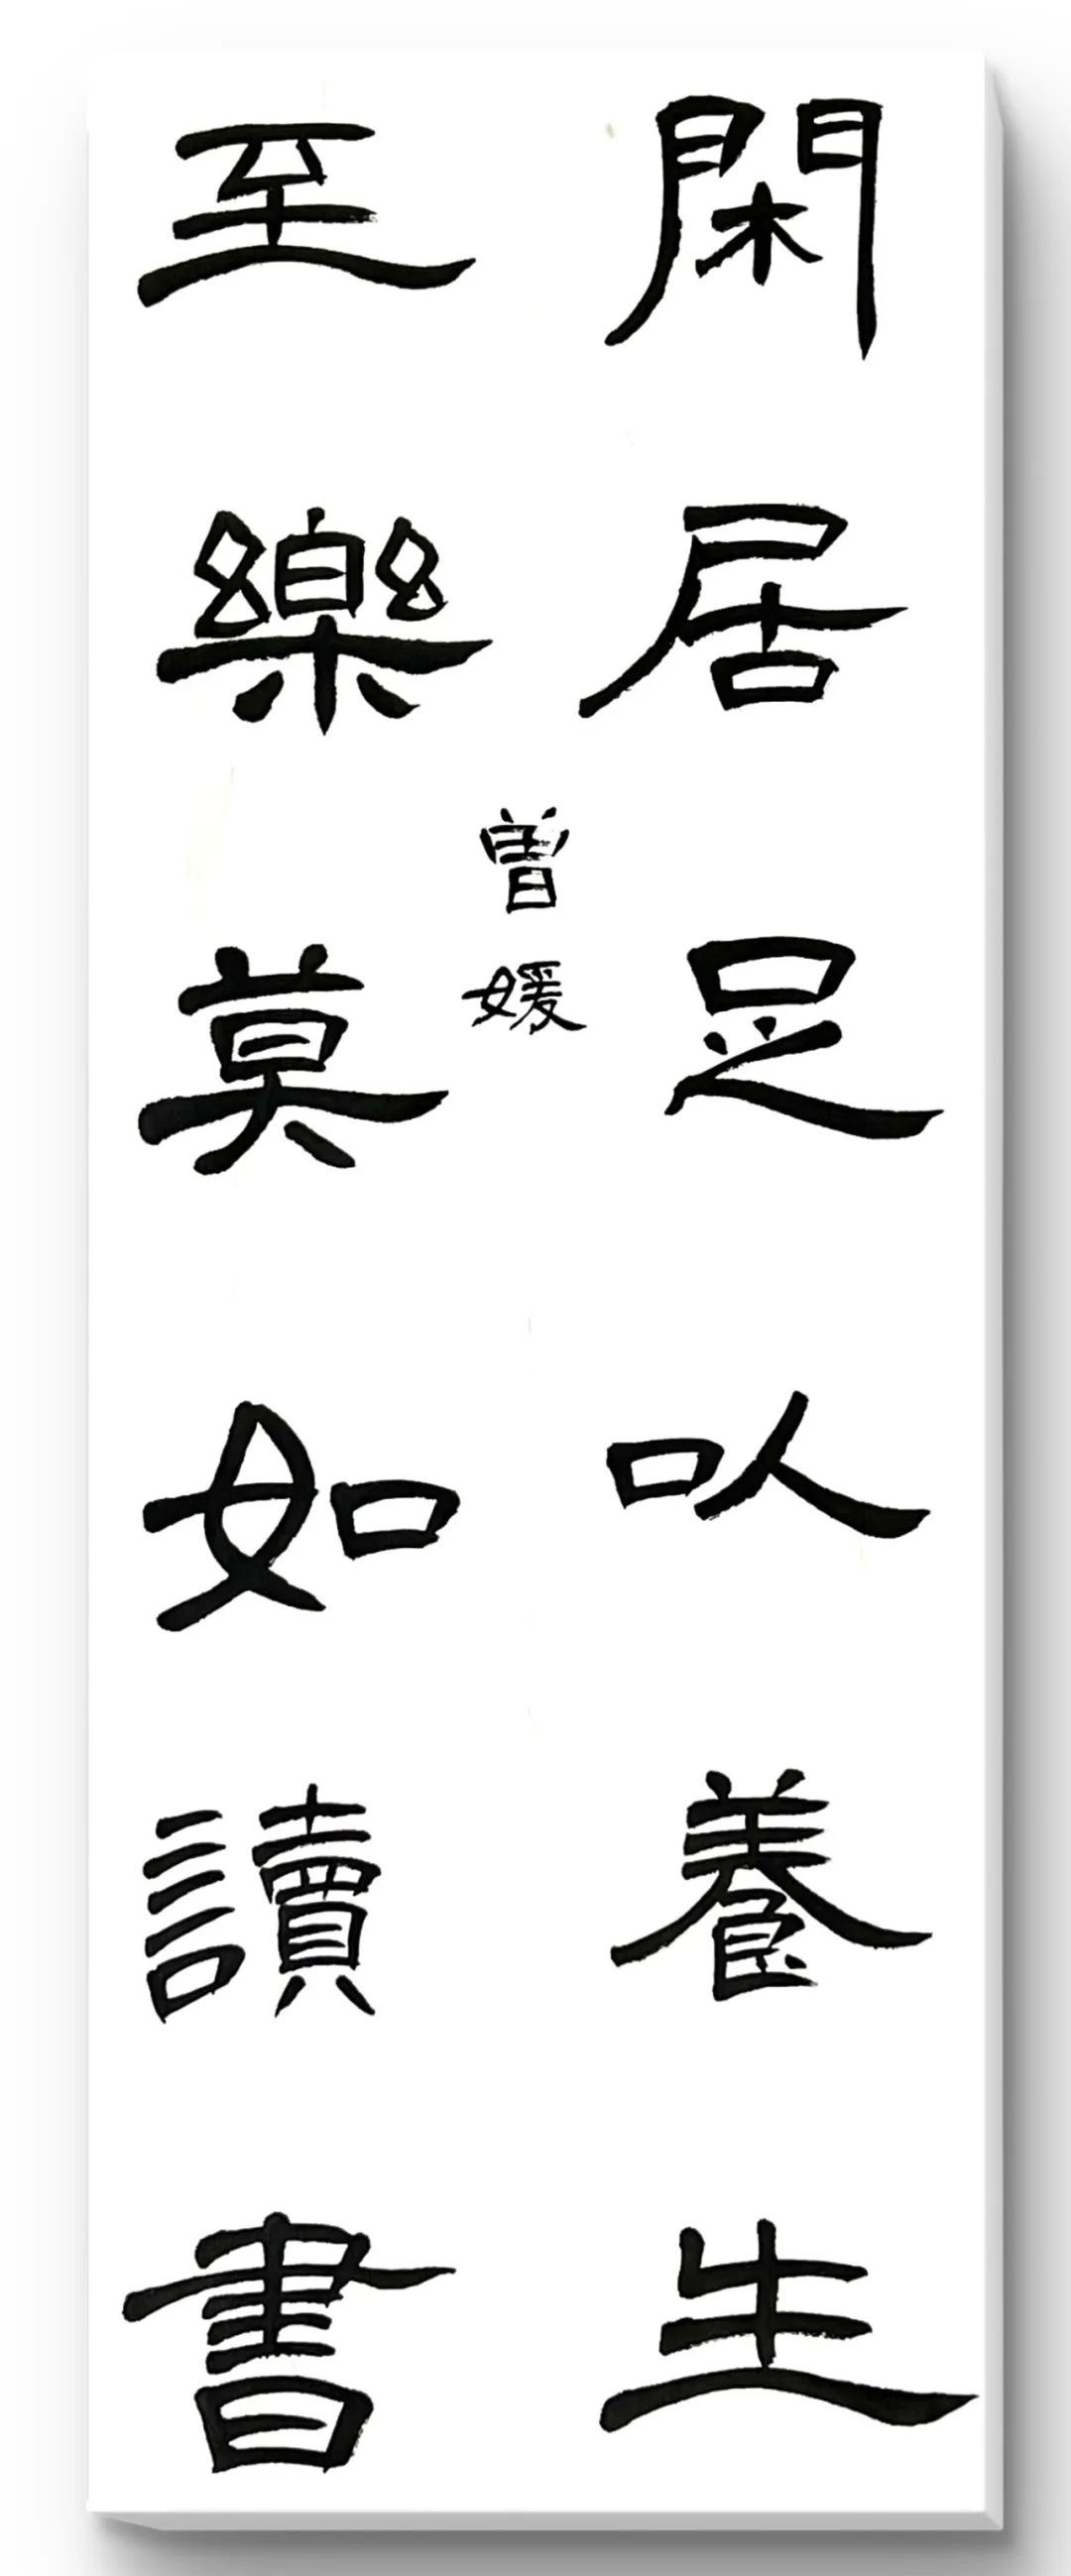 閑居足以養生
至樂莫如讀書
曾媛